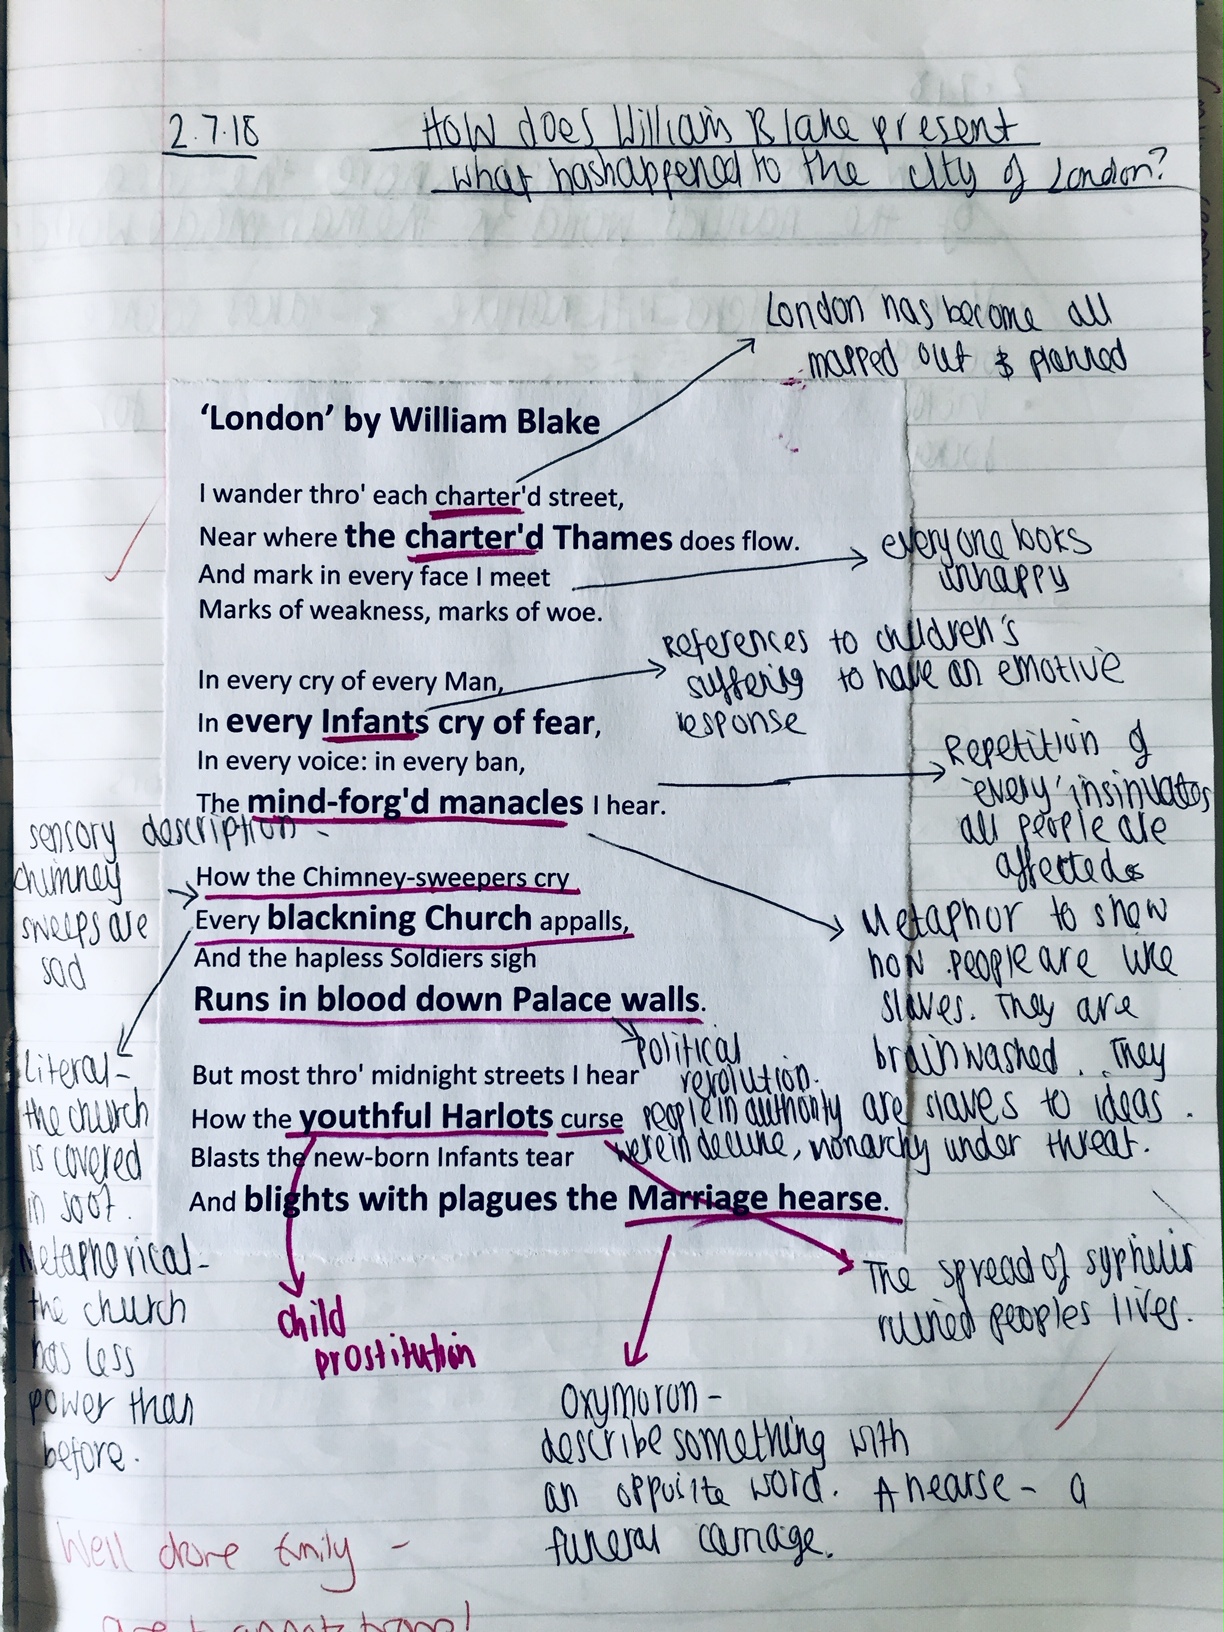 2.7.18
How does William Blake present
what has happened to the city of London?
London has become all
mapped out & planned
'London' by William Blake
I wander thro' each charter'd street,
Near where the charter'd Thames does flow.
And mark in every face I meet
Marks of weakness, marks of woe.
everyone looks
unhappy
In every cry of every Man,
In every Infants cry of fear,
In every voice: in every ban,
The mind-forg'd manacles I hear.
References to children's
suffering to have an emotive
response
Repetition of
'every' insinuates
all people are
affected
sensory description -
chimney
sweeps are
sad
How the Chimney-sweepers cry
Every blackning Church appalls,
And the hapless Soldiers sigh
Runs in blood down Palace walls.
Metaphor to show
how people are like
slaves. They are
brainwashed. They
are slaves to ideas.
Political
revolution.
People in authority
were in decline, monarchy under threat.
Literal -
the church
is covered
in soot.
Metaphorical -
the church
has less
power than
before.
But most thro' midnight streets I hear
How the youthful Harlots curse
Blasts the new-born Infants tear
And blights with plagues the Marriage hearse.
child
prostitution
The spread of syphilis
ruined peoples lives.
Oxymoron -
describe something with
an opposite word. A hearse - a
funeral carriage.
Well done Emily -